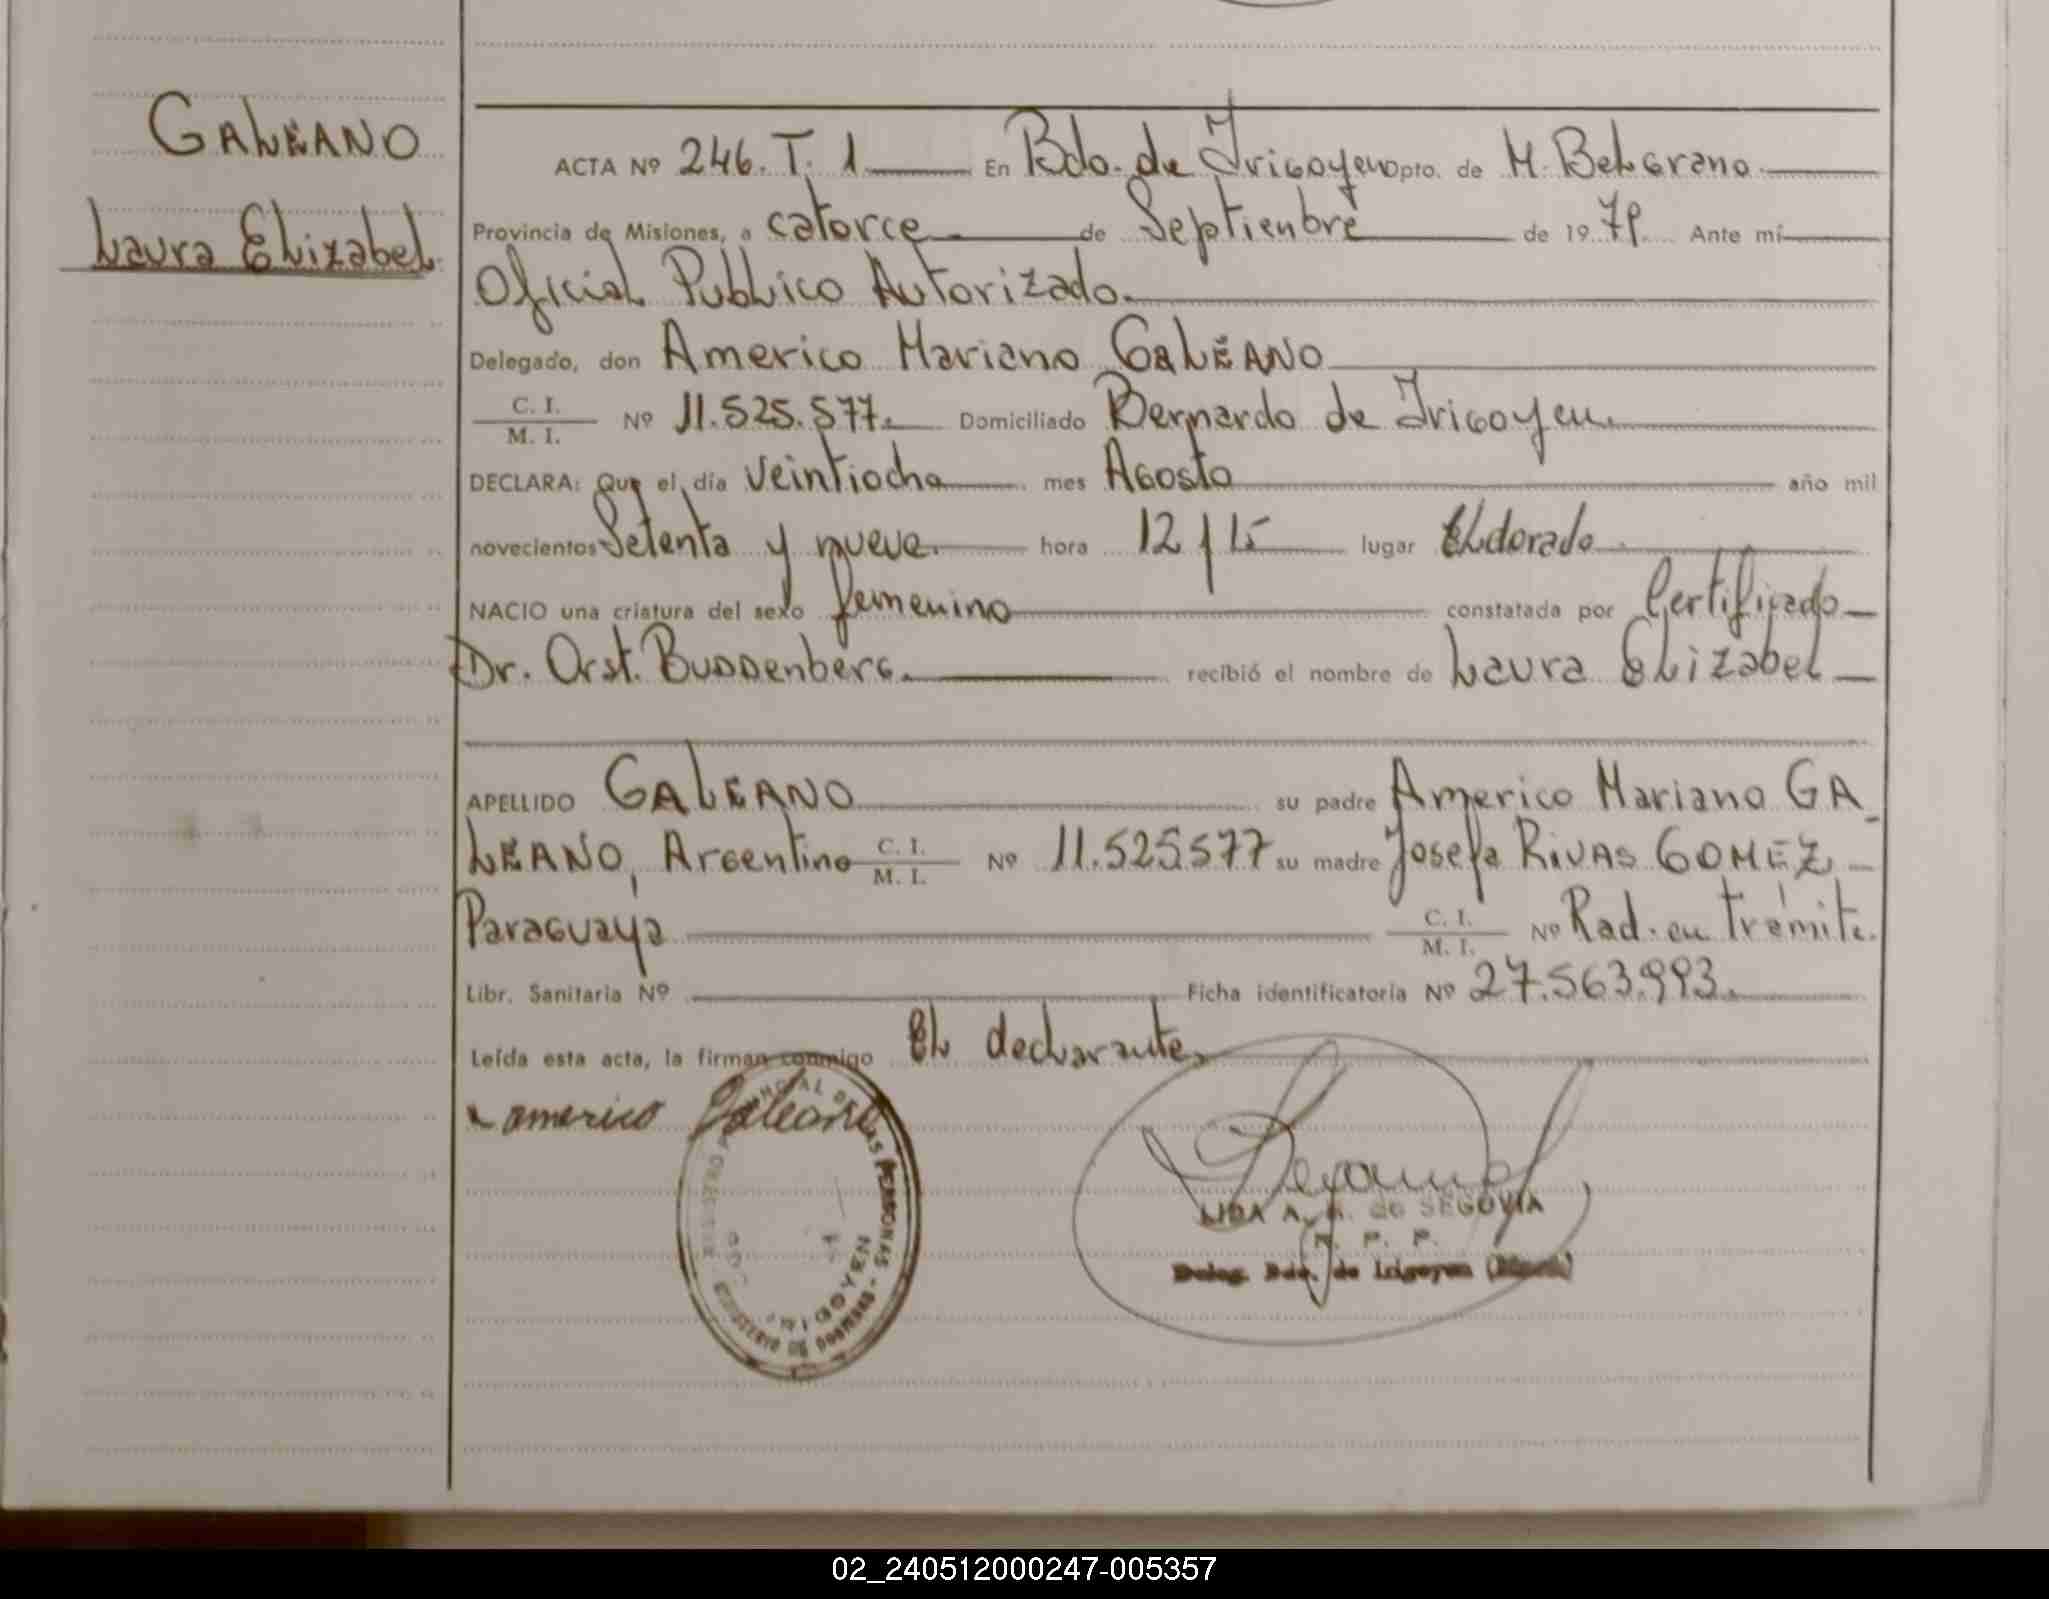 GALEANO
Laura Elizabel
ACTA Nº 246. T. 1 En Bdo. de Irigoyen Dpto. de M. Belgrano
Provincia de Misiones, a catorce de Septienbre de 1979. Ante mí
Oficial Publico Autorizado.
Delegado, don Americo Mariano GALEANO
C. I.
M. I. Nº 11.525.577. Domiciliado Bernardo de Irigoyen.
DECLARA: Que el día veintiocho mes Agosto año mil
novecientos Setenta y nueve. hora 12 / 15 lugar Eldorado
NACIO una criatura del sexo femenino constatada por Certificado
Dr. Orst. Bussenberg. recibió el nombre de Laura Elizabel
APELLIDO GALEANO su padre Americo Mariano GA-
LEANO, Argentino C. I. M. I. Nº 11.525.577 su madre Josefa RIVAS GOMEZ
Paraguaya C. I. M. I. Nº Rad. en trámite.
Libr. Sanitaria Nº Ficha identificatoria Nº 27.563.993.
Leída esta acta, la firman conmigo El declarante.
americo Galeano
LIDA A. de SEGOVIA
P. P.
Deleg. Bdo. de Irigoyen
02_240512000247-005357